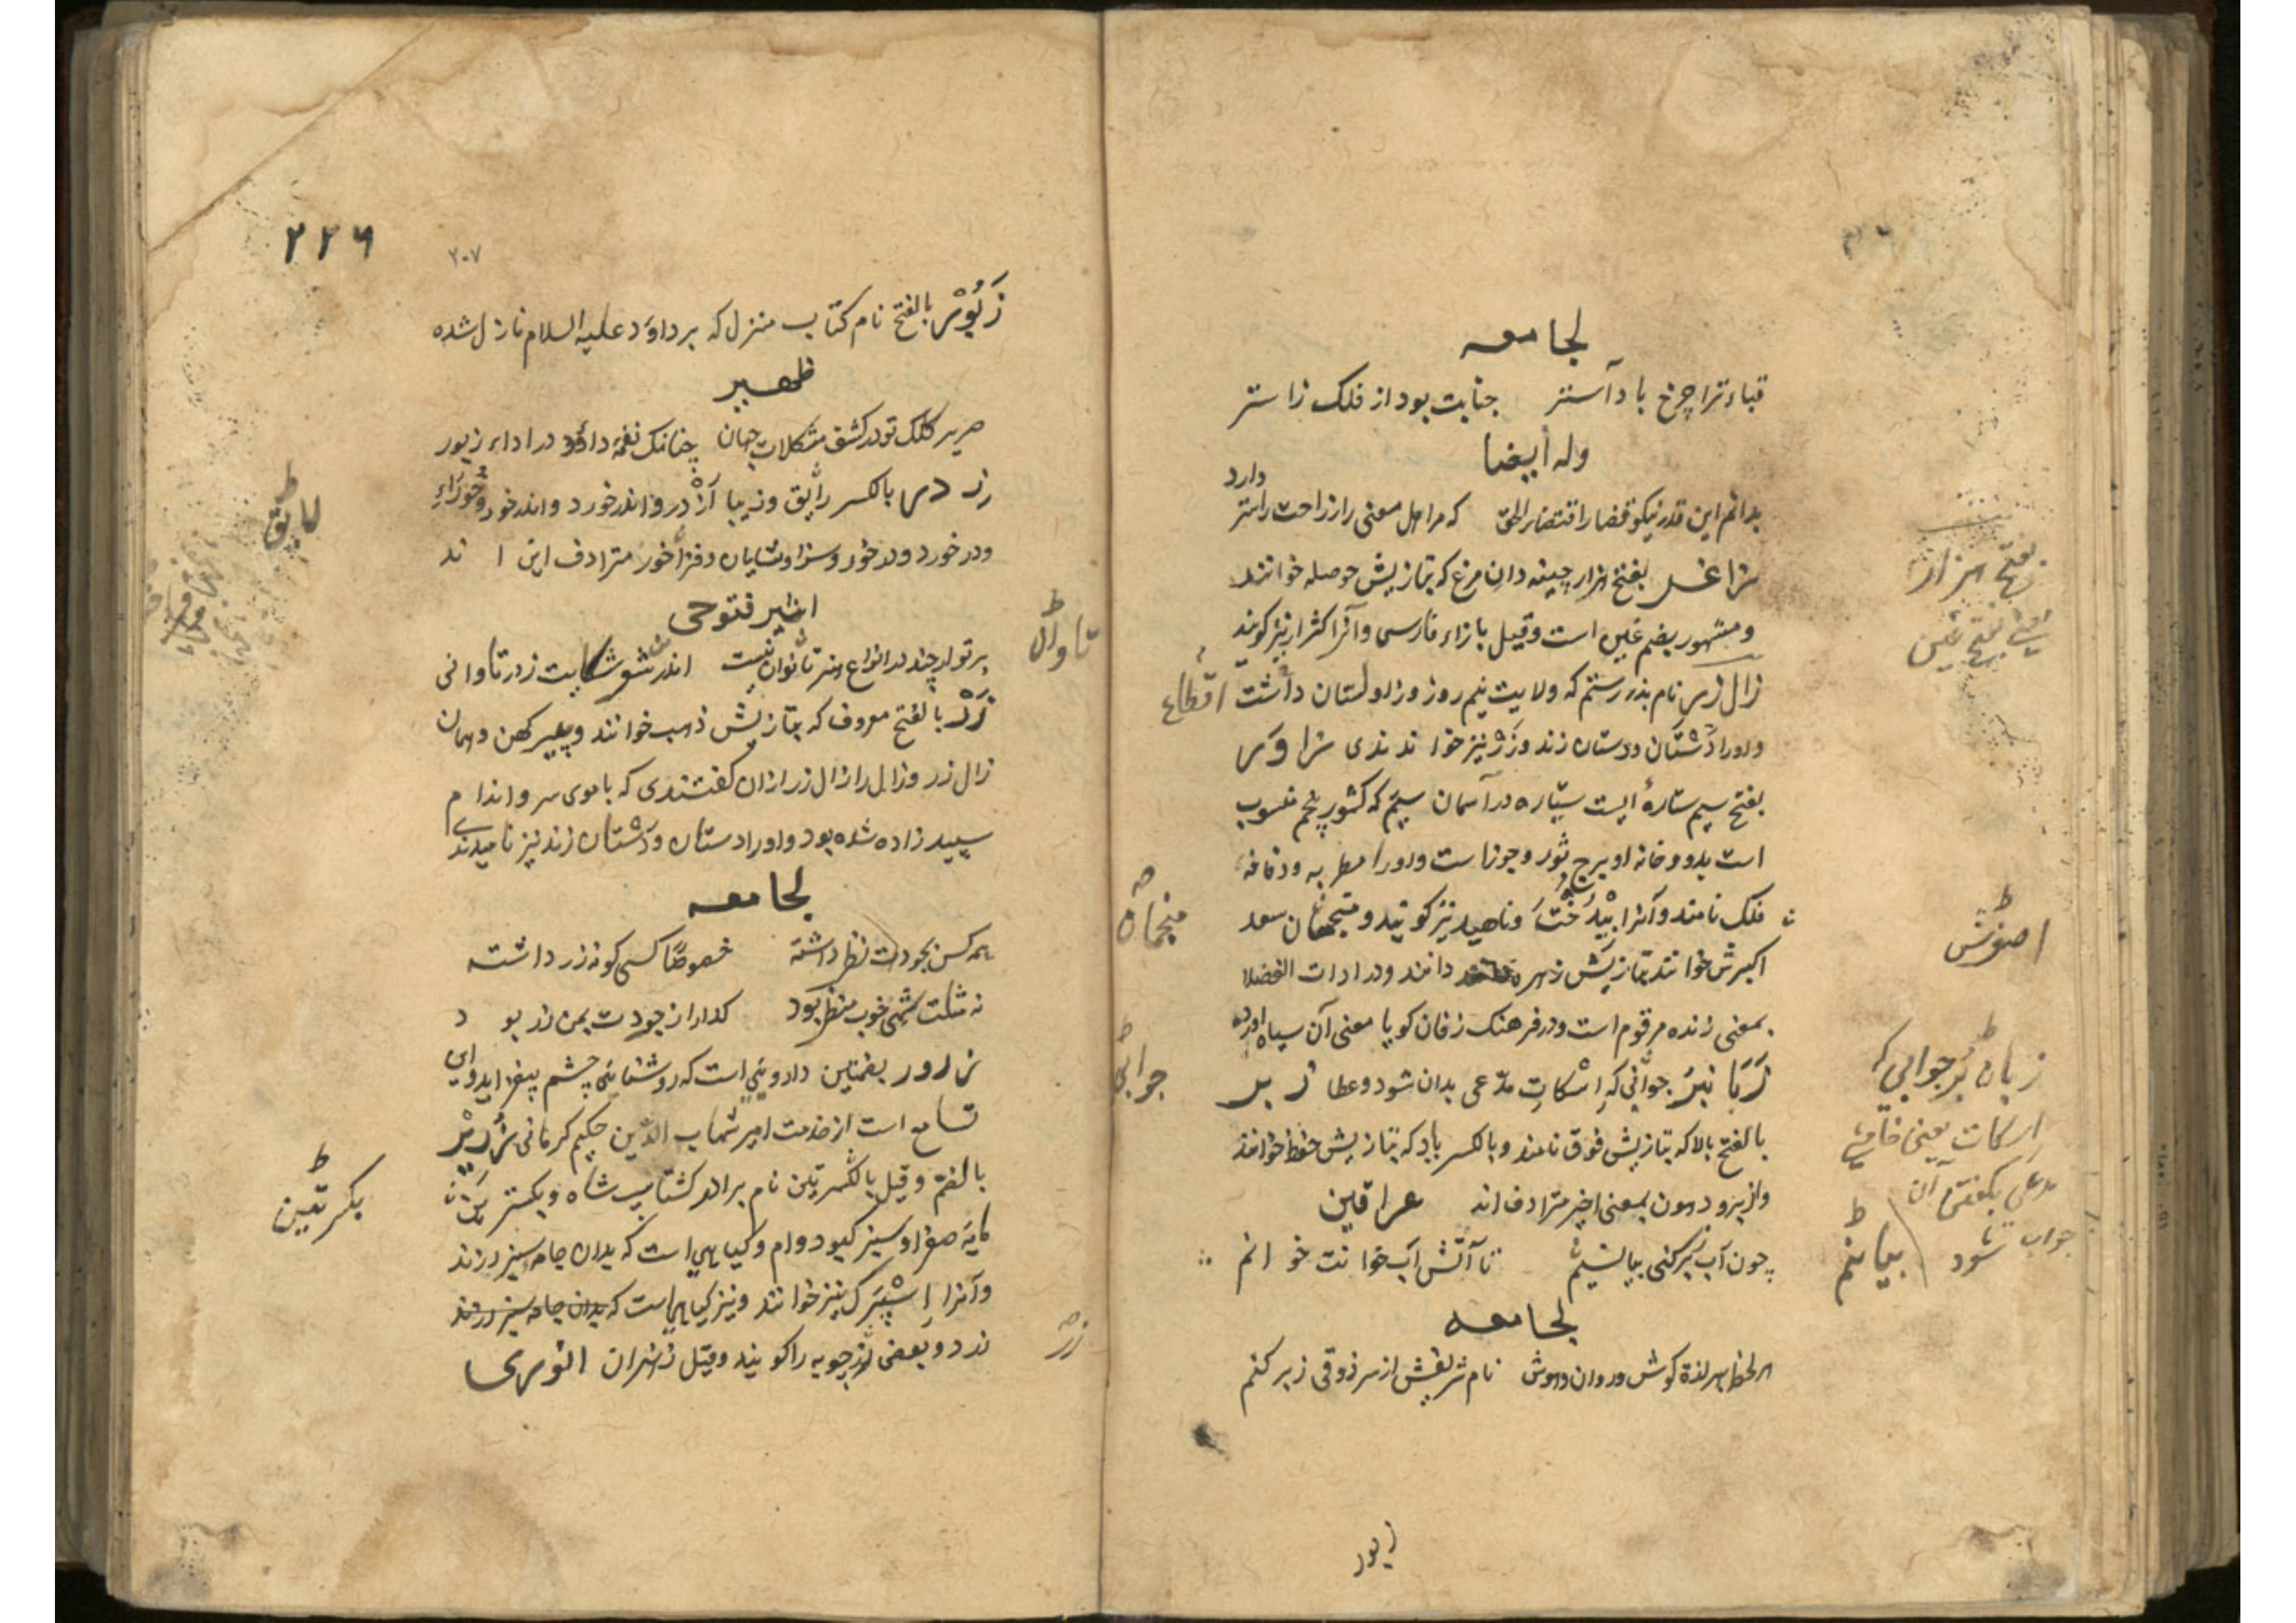 لجامعه
قباء ترا چرخ باد آستر جنابت بود از فلک زاستر
وله ایضا
دارد
بدانم این قدر نیکو قضا را اقتضا الحق که مر اهل معنی را ز احت راستر
زاغر بفتح چینه دان مرغ که بتازیش حوصله خوانند
و مشهور بضم غین است وقیل بازاء فارسی و آنرا کژار نیز گویند
زال زر نام پدر رستم که ولایت نیم روز و زاولستان داشت
و او را دستان و دستان زند و زر نیز خواندندی زاور
بفتح سیم ستارۀ ایست سیّاره در آسمان سیم که کشور پنجم منسوب
است بدو و خانه او برج ثور و جوزاست و او را مطربه و رقاصه
فلک نامند و آنرا بیدخت و ناهید نیز گویند و منجمان سعد
اکبرش خوانند بتازیش زهره دانند و در ادات الفضلا
بمعنی زنده مرقوم است و در فرهنک زفان کویا معنی آن سیاه آورده
زبانبر جوابی که اسکات مدّعی بدان شود وعطا زبر
بالفتح بالا که بتازیش فوق نامند و بالکسر یاد که بتازیش حفظ خوانند
وازبر و درون بمعنی اخیر مترادف اند عراقین
چون آب زبر کنی بیانم تا آتش آب خوانت خوانم
لجامعه
هر لحظه بهر لذة گوش و روان و هوش نام شریفش از سر ذوقی زبر کنم
زبور
اقطاع
منجمان
جوابی
بفتح
بفتح غین
زبان بر جوابی که
اسکات یعنی خاموشی
مدعی بگفتن آن
جواب شود
بیانم
۲۲۶
۲۰۷
زبور بالفتح نام کتاب منزل که بر داود علیه السلام نازل شده
ظهیر
صریر کلک تو در کشف مشکلات جهان چنانک نغمه داؤد در اداء زبور
بالکسر رایق و زیبا در و اندر خورد و اندر خور و
و در خورد و در خور و سزا و شایان و فرا خور مترادف این اند
اثیر فتوحی
بر تو ار چند در انواع هنر تاوان نیست اندر شکایت زدر تاوانی
زر بالفتح معروف که بتازیش ذهب خوانند و پیر کهن و همان
زال زر و زال را زال زر ازان گفتندی که با موی سر و اندام
سپید زاده شده بود و او را دستان و دستان زند نیز نامیدندی
لجامعه
همه کس بجودت نظر داشته خصوصًا کسی کو نه زر داشته
نه شکت شهی خوب منظر بود گدا را از جودت بمن زر بود
زرور بفتحتین دارویی است که روشنایی چشم بیفزاید و این
تسامع است از خدمت امیر شهاب الدّین حکیم کرمانی زریر
بالفتح وقیل بالکسرتین نام برادر گشتاسپ شاه و
مایه صفرا و سبز کبود و ام و گیاهی است که بدان جامه سبز رزند
و آنرا اسپرک نیز خوانند و نیز گیاهی است که بدان جامه سبز رزند
زرد و بعضی زردچوبه را گویند وقیل زعفران انوری
لایق
تاوان
بکسرتین
زر